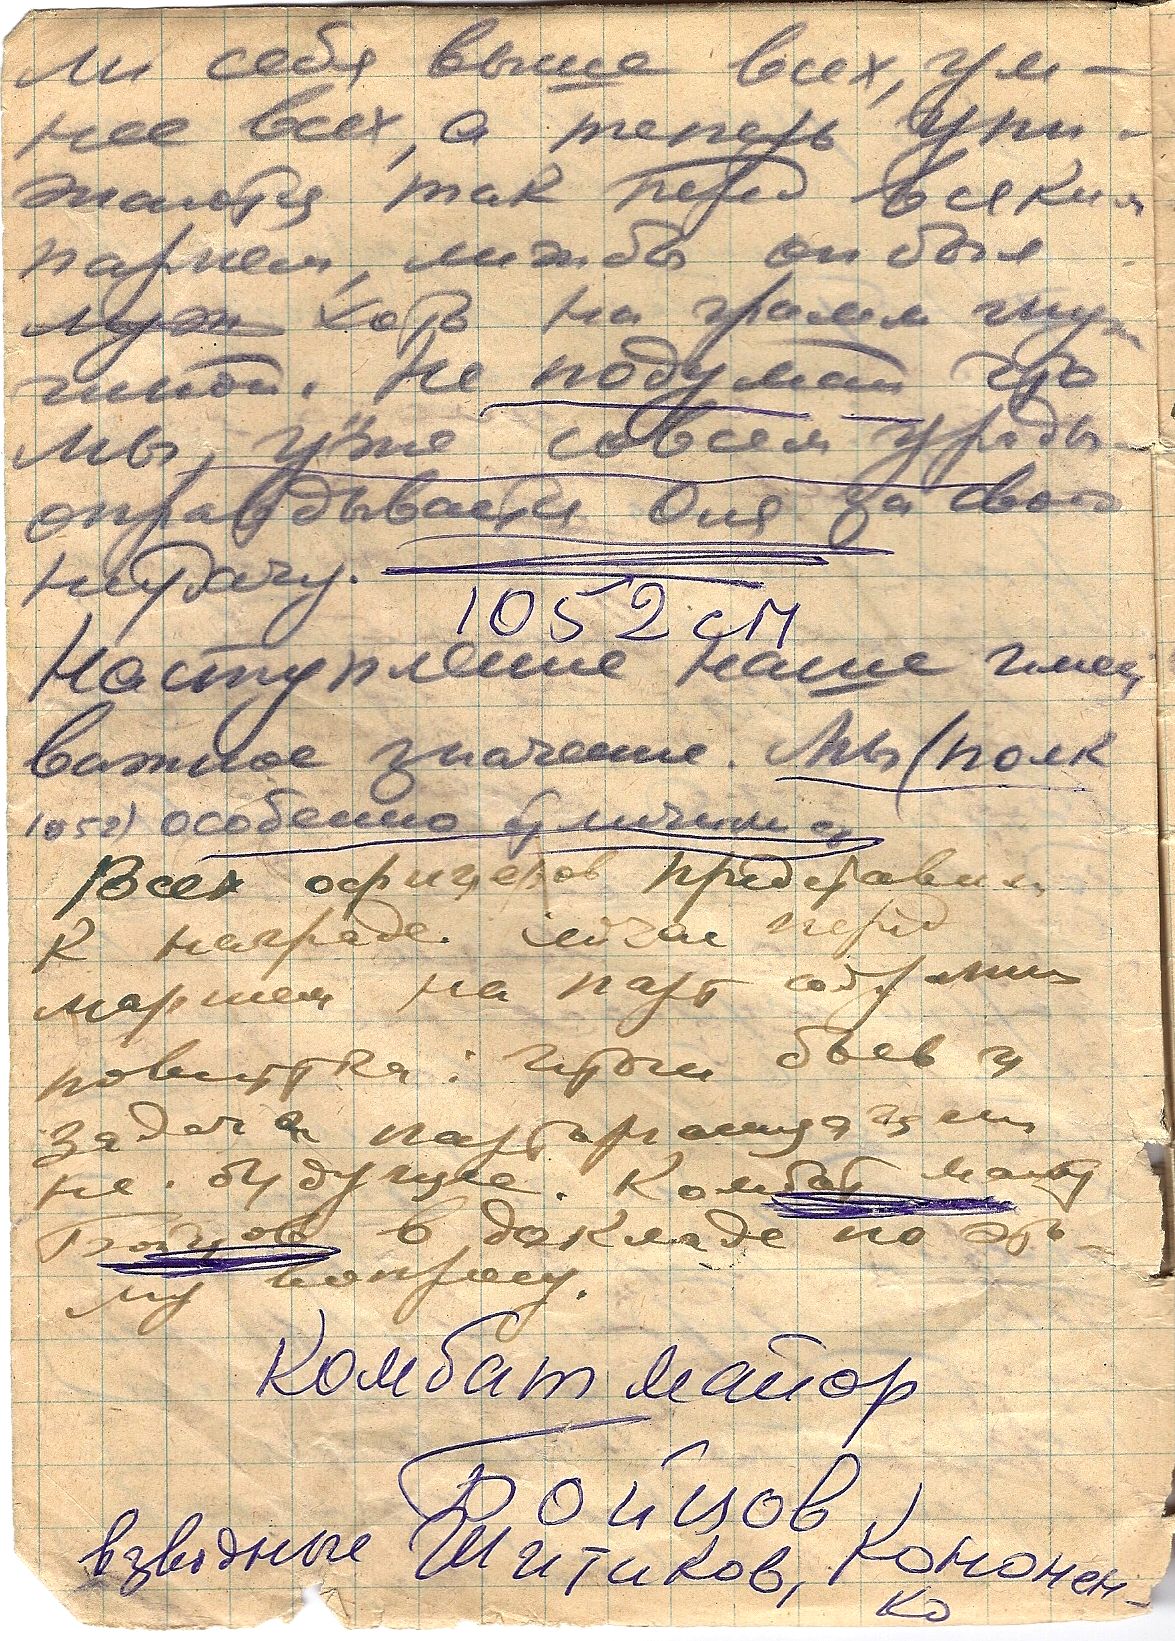 ли себя выше всех, ум-
нее всех, а теперь уни-
жаются так перед всяким
парнем, лишь бы он был
муж хоть на грамм муж
чиной. Не подумай что
мы, уже совсем уроды
оправдывается Оля за свою
неудачу.
1052 сп
Наступление наше имеет
важное значение. Мы (полк
1052) особенно отличился
Всех офицеров представили
к награде. Сейчас перед
маршем на парт собрании
повестка: итоги боев и
задачи парторганизации
на будущее. Комбат майор
Бойцов в докладе по это-
му вопросу.
Комбат майор
Бойцов
взводные Шитиков, Кононен-
ко